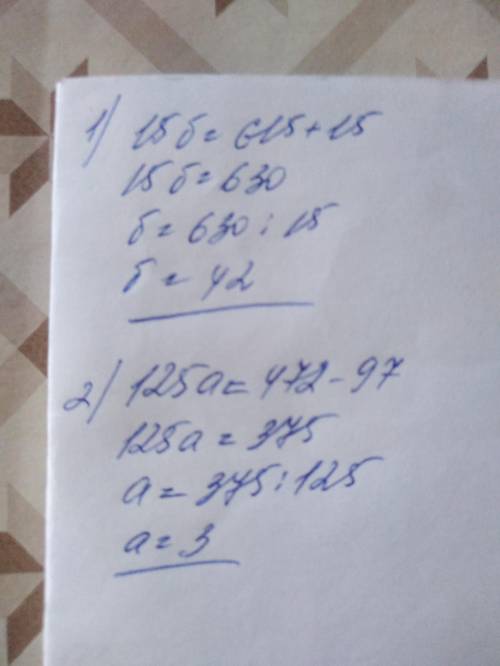 1) 15б = 615 + 15
15б = 630
б = 630 : 15
б = 42
2) 125а = 472 - 97
125а = 375
а = 375 : 125
а = 3